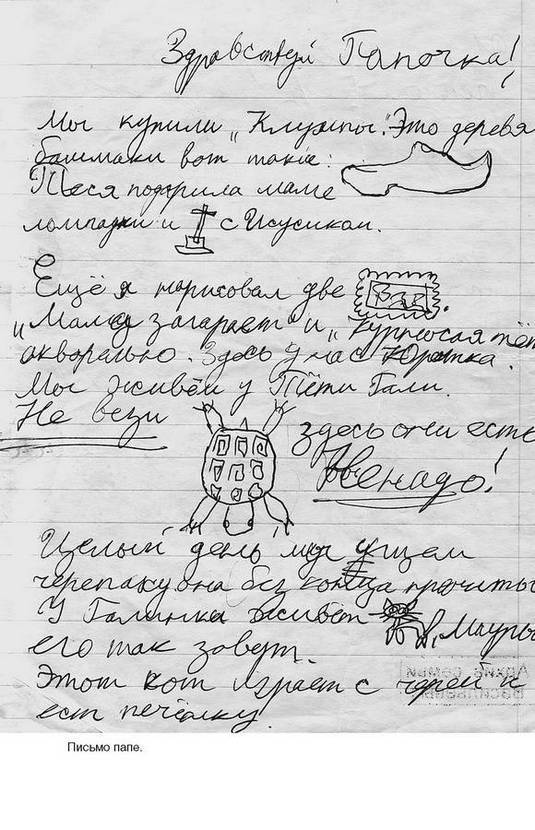 Здравствуй Папочка!
Мы купили „Клумпы". Это деревя
башмаки вот такие:
Песя подарила маме
лампадки и с Исусиком.
Ещё я нарисовал две
„Мама загарает" и „курносая тёт
акварелью. Здесь у нас
Мы живём у Тёти Гали.
Не вези здесь они есть
Ненадо!
Целый день мы ищем
черепаху она без конца прячиты
У Галинки живёт „Мауры
его так зовут.
Этот кот играет с черей и
ест печёнку.
Архив семьи
Васильевых
Письмо папе.